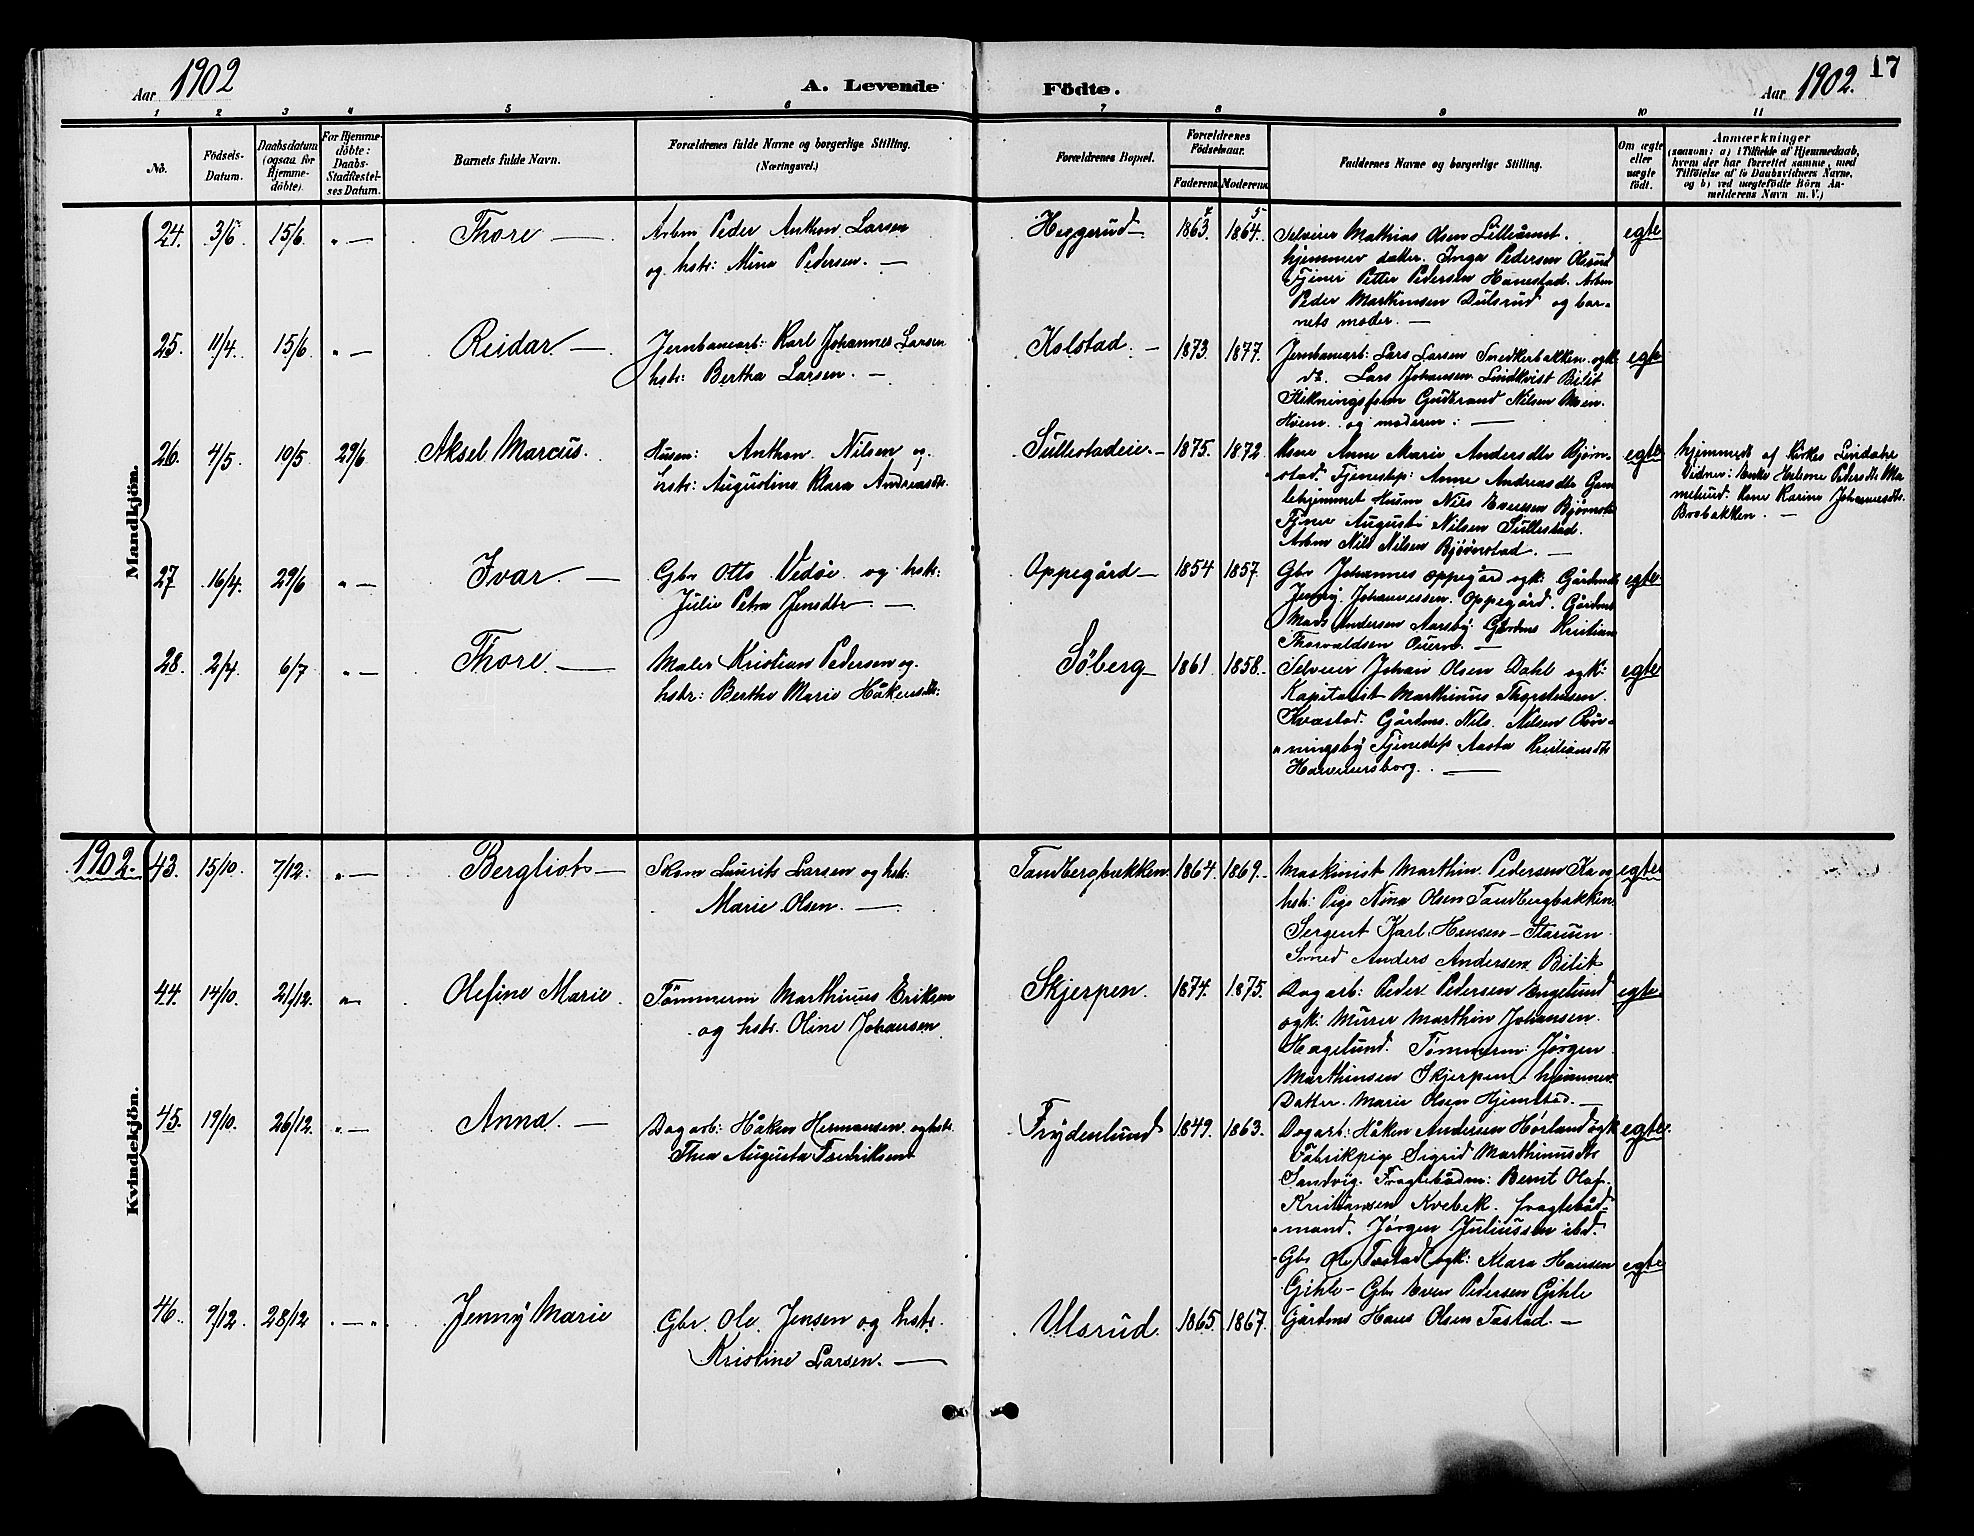 Aar 1902 A. Levende Födte. Aar 1902. 17
1 2 3 4 5 6 7 8 9 10 11
No. Födsels-Datum. Daabsdatum (ogsaa for Hjemmedöbte). For Hjemmedöbte: Daabs-Stadfæstelses Datum. Barnets fulde Navn. Forældrenes fulde Navne og borgerlige Stilling. (Næringsvei.) Forældrenes Bopæl. Forældrenes Födselsaar. Faderens. Moderens. Faddernes Navne og borgerlige Stilling. Om ægte eller uægte födt. Anmærkninger
(saasom: a) i Tilfælde af Hjemmedaab,
hvem der har forrettet samme, med
Tilföielse af to Daabsvidners Navne,
og b) ved uægtefödte Börn Anmelderens Navn m. V.)
Mandkjön.
24. 3/5 15/6 " — Thore — Arbm Peder Anthon Larsen
og hstr: Mina Pedersen. —
Heggerud — 1863. 1864.
Selveier Mathias Olsen Lilleåmot.
hjemmev datter. Inga Pedersen Olsrud
Tjener Petter Pedersen Hanestad. Arbm
Peder Marthinsen Dulsrud og bar-
nets moder. —
egte
25. 11/4. 15/6 " — Reidar — Jernbanearb: Karl Johannes Larsen
hstr: Bertha Larsen. —
Kolstad. — 1873. 1877.
Jernbanearb: Lars Larsen Snedkerbakken. ogk:
do. Lars Johansen Lindkvist Bilit
Stikningsform Gudbrand Nilsen Moen.
Hvem. og moderen: —
egte
26. 4/5 10/5 29/6 Aksel Marcus. Husm: Anthon Nilsen og
hstr: Augustine Klara Andreasdtr
Sullestadeie — 1875. 1872.
Kone Anne Marie Andersdtr Bjørn-
stad. Tjenestep: Anne Andreasdtr Gam
lehjemmet Husm Nils Evensen Bjørnstad
Tjener August Nilsen Sullestad.
Arbm Nils Nilsen Bjørnstad. —
egte
hjemmedt af Kirkes Lindahr
Vidner: Enke Helene Pedersdtr Ma
melund. Kone Karine Johannesdtr.
Brobakken. —
27 16/4. 29/6 " — Ivar. — Gbr Otto Vedøe. og hstr:
Julie Petra Jensdtr. —
Oppegård — 1854 1857.
Gbr Johannes Oppegård ogk: Gårdmd
Jenny Johannessen Oppegård. Gårdmd
Mads Andersen Aarsby Gårdms Kristian
Thorvaldsen —
egte
28. 2/4 6/7 " — Thore — Maler Kristian Pedersen og.
hstr: Berthe Marie Håkensdtr:
Söberg — 1861. 1858.
Selveier Johan Olsen Dahl ogk:
Kapitalist Marthinius Thorstensen
Kvæstad. Gårdms. Nils. Nilsen Røn-
ningsby Tjenestep Aasta Kristiansdtr
Hammersborg. —
egte
Kvindekjön.
1902. 43. 15/10. 7/12. " — Bergliot — Skom Laurits Larsen og hstr:
Marie Olsen. —
Tandbergbakken. 1864 1869.
Maskinist Marthin Pedersen Ka og
hstr: Pige Nina Olsen Tandbergbakken
Sergent Karl. Hansen — Staruen
Smed Anders Andersen Bilit
egte
44. 14/10. 21/12. " Olefine Marie. Tømmerm Marthinus Eriksen
og hstr. Oline Johansen
Skjerpen. 1874. 1875.
Dagarb: Peder Pedersen Engelund
ogk: Murer Marthin Johansen.
Hagelund. Tømmerm: Jørgen.
Marthinsen Skjerpen hjemmev.
Datter. Marie Olsen Hjemstad. —
egte.
45. 19/10. 26/12. " — Anna. — Dagarb: Håken Hermansen. oghstr.
Thea Augusta Fredriksen
Frydenlund 1849. 1863.
Dagarb: Håken Andersen Hørland ogk
Fabrikpige Sigrid Marthinusdtr
Sandvig. Fragtebådm: Bernt Olaf.
Kristiansen Kvebek. fragtebåd-
mand. Jørgen Juliussen ibd.
egte.
46. 9/12. 28/12 " — " Jenny Marie Gbr. Ole Jensen og hstr.
Kristine Larsen. —
Ulsrud. 1865. 1867.
Gbr Ole Tostad ogk: Klara Hansen
Gihle — Gbr Even Pedersen Gihle
Gårdms Hans Olsen Tostad. —
egte